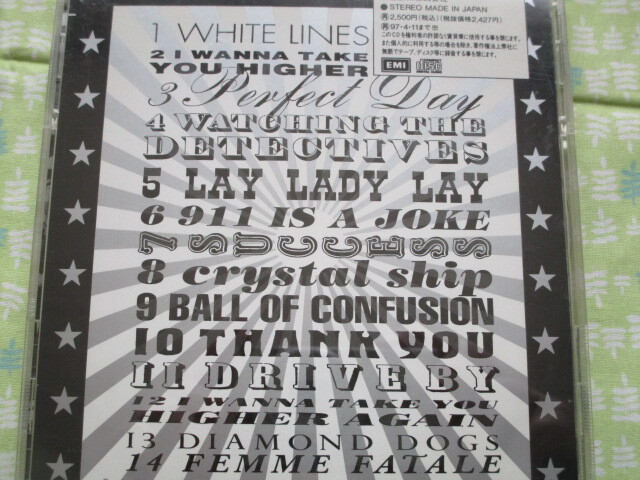 ●STEREO MADE IN JAPAN
㋐2,500円(税込)(税抜価格2,427円)
㋐97・4・11まで
このCDを権利者の許諾なく賃貸業に使用する事を禁じます。
また個人的に利用する等の場合を除き、著作権法上弊社に
無断でテープ、ディスク等に録音する事を禁じます。
EMI
1 WHITE LINES
2 I WANNA TAKE
YOU HIGHER
3 Perfect Day
4 WATCHING THE
DETECTIVES
5 LAY LADY LAY
6 911 IS A JOKE
7 SUCCESS
8 crystal ship
9 BALL OF CONFUSION
10 THANK YOU
11 DRIVE BY
12 I WANNA TAKE YOU
HIGHER AGAIN
13 DIAMOND DOGS
14 FEMME FATALE